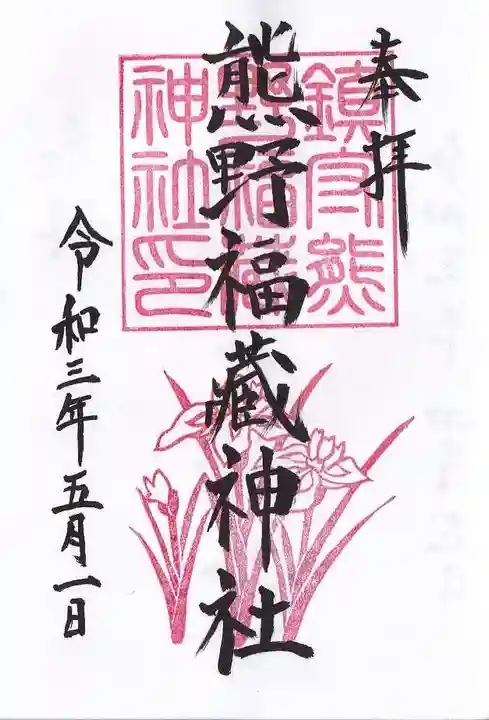 奉拝
熊野福藏神社
令和三年五月一日
鎮守熊
野福藏
神社印